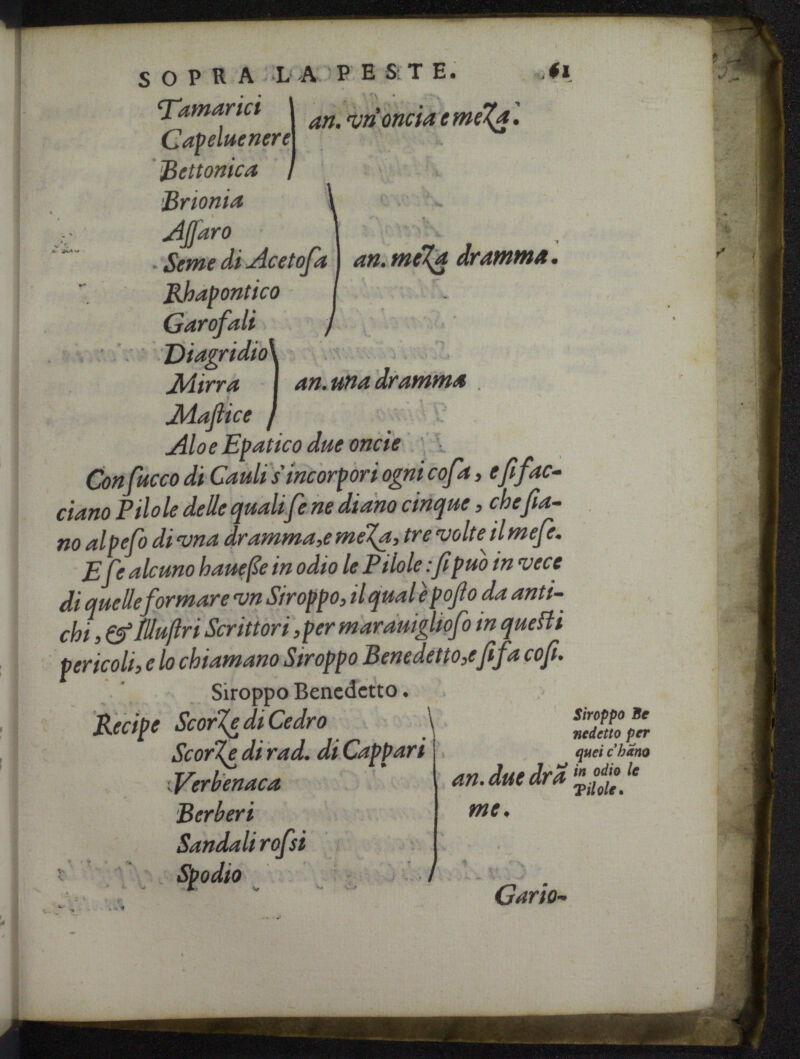 SOPRA LA PESTE. 61
Tamarici
Capeluenere
Bettonica
an. vn'oncia e meza.
Brionia
Aſſaro
Seme di Acetoſa
Rhapontico
Garofali
an. meza dramma.
Diagridio
Mirra
Maſtice
an. una dramma
Aloe Epatico due oncie
Con ſucco di Cauli s'incorpori ogni coſa, e ſi fac-
ciano Pilole delle quali ſe ne diano cinque, che ſia-
no al peſo di vna dramma, e meza, tre volte il meſe.
E ſe alcuno haueſſe in odio le Pilole: ſi può in vece
di quelle formare vn Siroppo, il qual è poſto da anti-
chi, & Illuſtri Scrittori, per marauiglioſo in queſti
pericoli, e lo chiamano Siroppo Benedetto, e ſi fa coſi.
Siroppo Benedetto.
Recipe Scorze di Cedro
Scorze di rad. di Cappari
Verbenaca
Berberi
Sandali roſsi
Spodio
an. due drã
me.
Siroppo Be
nedetto per
quei c'hãno
in odio le
Pilole.
Gario-